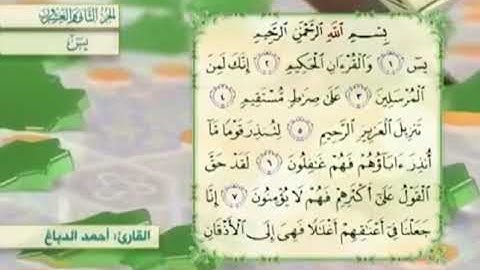 الجزء الثاني والعشرون
يس
بِسْمِ اللَّهِ الرَّحْمَٰنِ الرَّحِيمِ
يسٓ ١ وَالْقُرْءَانِ الْحَكِيمِ ٢ إِنَّكَ لَمِنَ
الْمُرْسَلِينَ ٣ عَلَىٰ صِرَٰطٍ مُّسْتَقِيمٍ ٤
تَنزِيلَ الْعَزِيزِ الرَّحِيمِ ٥ لِتُنذِرَ قَوْمًا مَّآ
أُنذِرَ ءَابَآؤُهُمْ فَهُمْ غَٰفِلُونَ ٦ لَقَدْ حَقَّ
الْقَوْلُ عَلَىٰٓ أَكْثَرِهِمْ فَهُمْ لَا يُؤْمِنُونَ ٧ إِنَّا
جَعَلْنَا فِىٓ أَعْنَٰقِهِمْ أَغْلَٰلًا فَهِىَ إِلَى الْأَذْقَانِ
القارئ: أحمد الدباغ